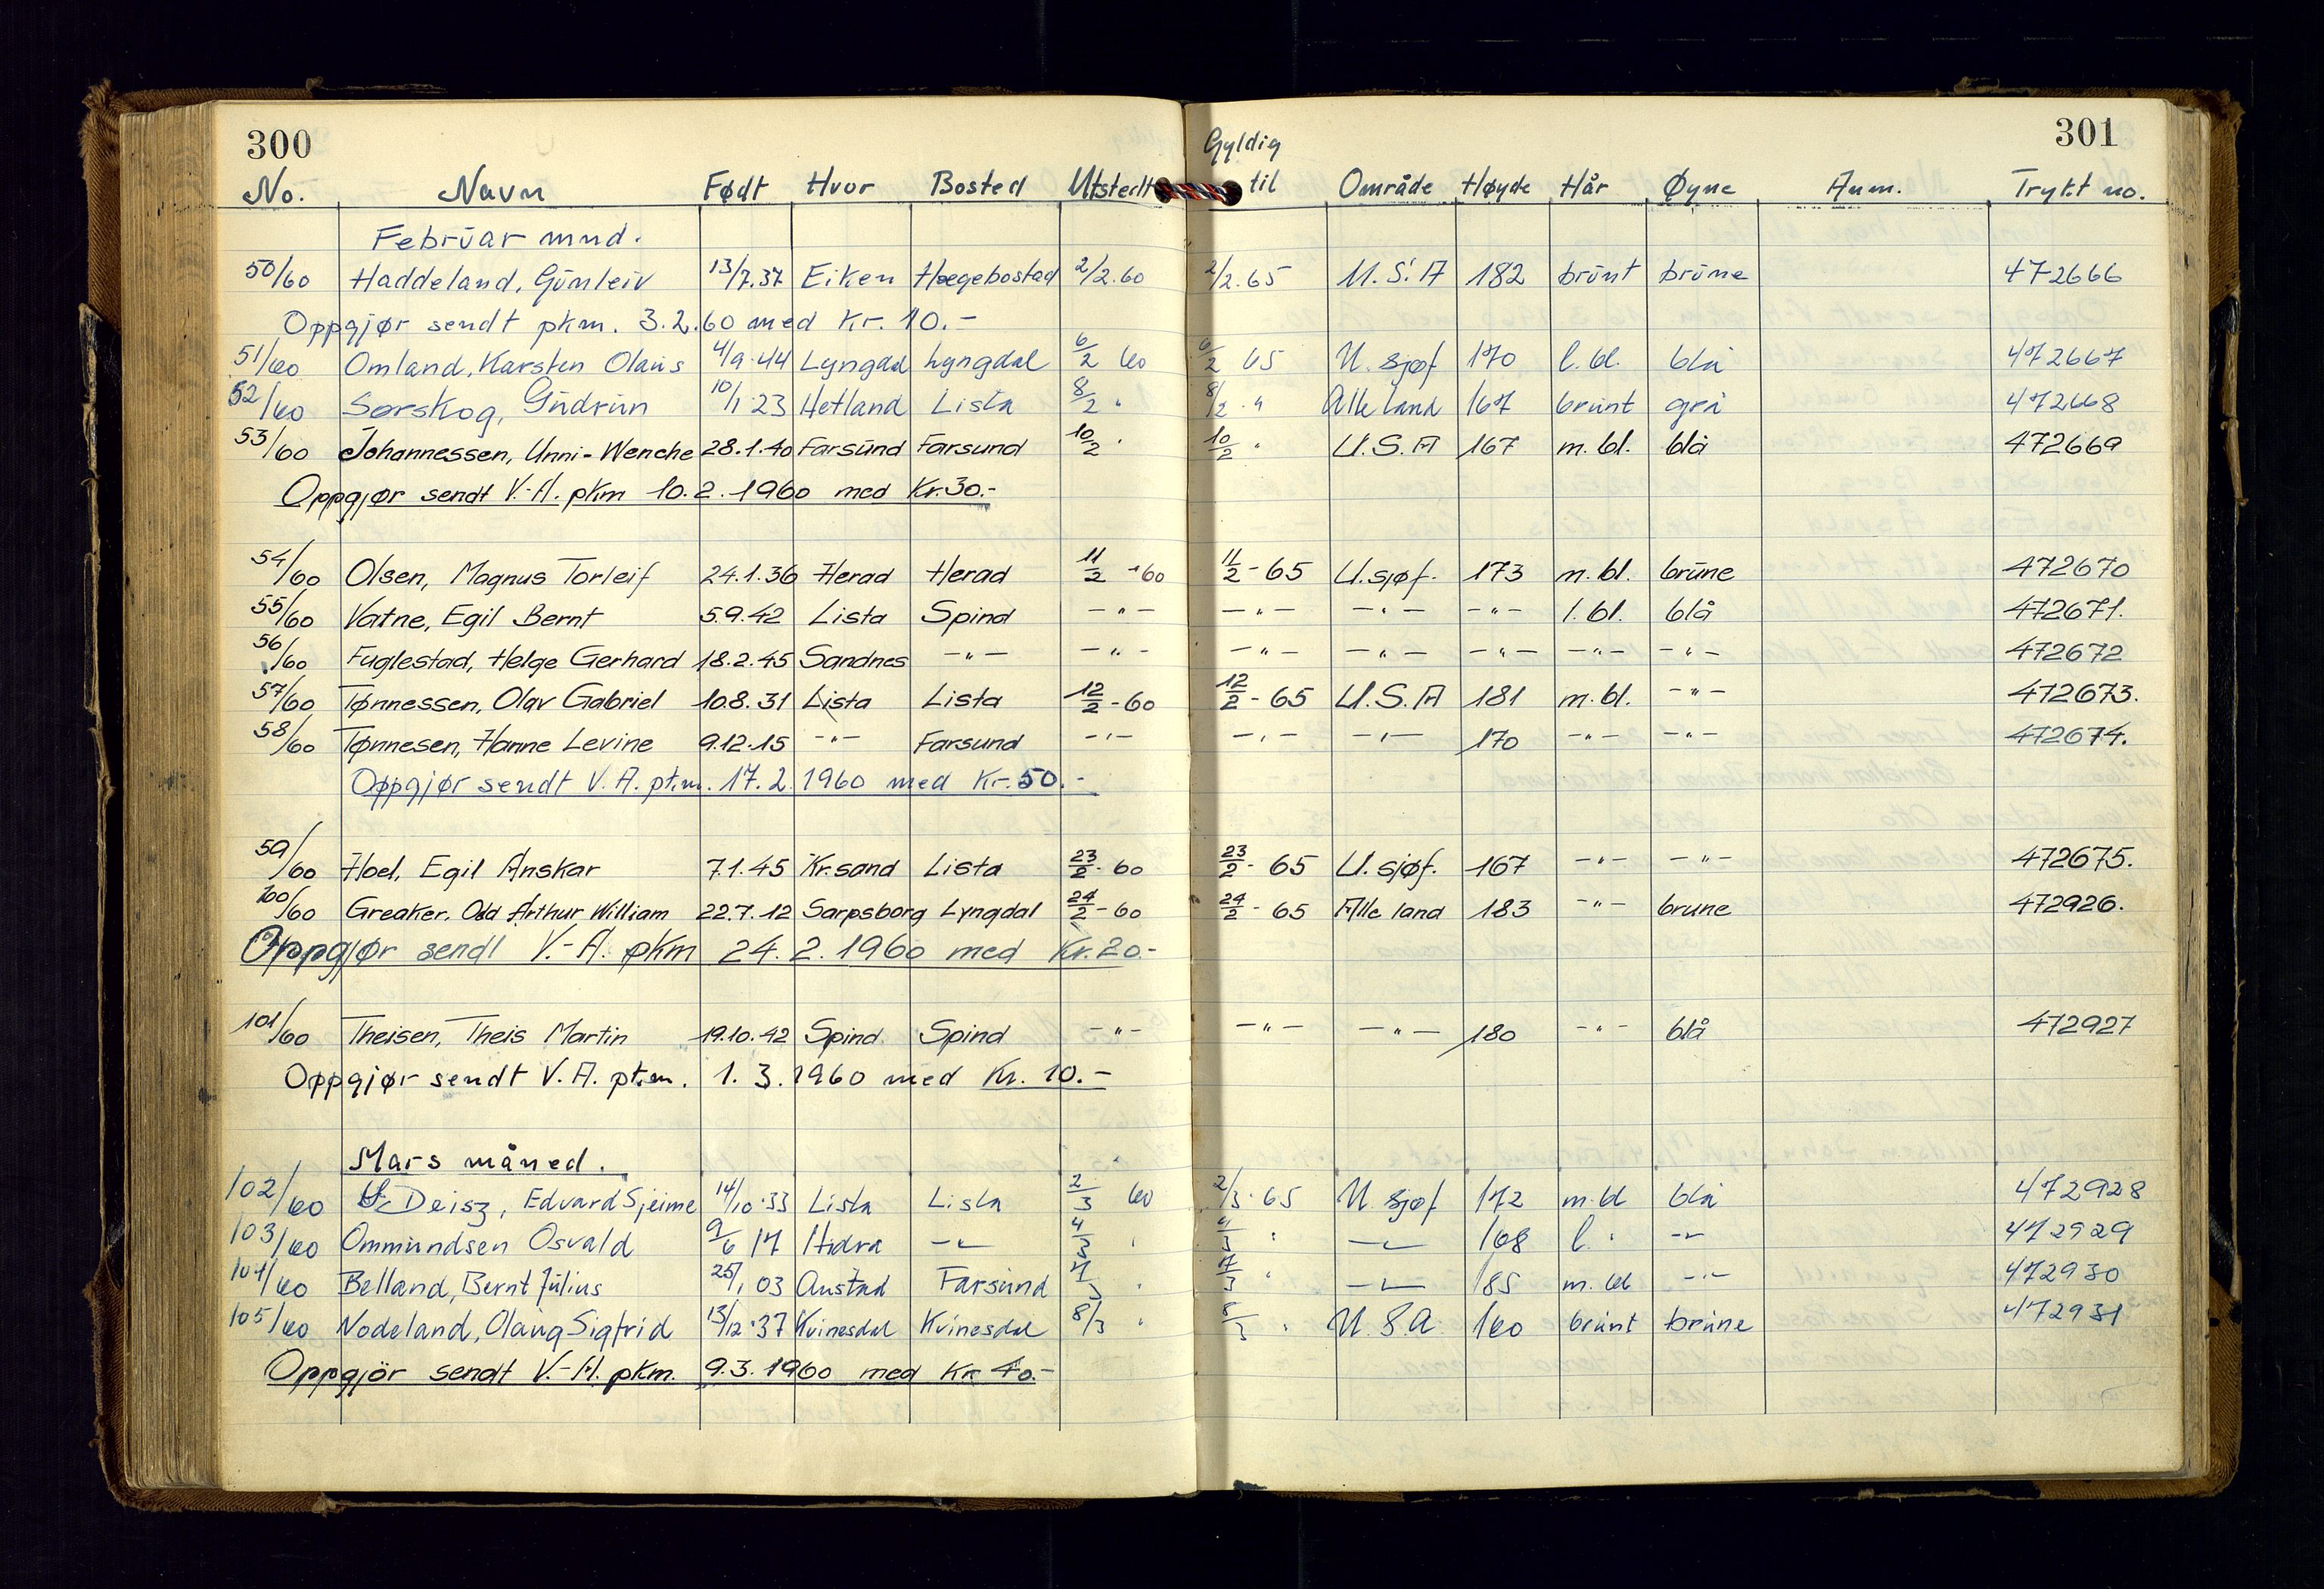 300
301
No. Navn Født Hvor Bosted Utstedt Gyldig til Område Høyde Hår Øyne Anm. Trykt no.
Februar mnd.
50/60 Haddeland, Gunleiv 13/7.37 Eiken Hægebostad 2/2.60 2/2.65 U.S.A 182 brunt brune 472666
Oppgjør sendt pkm. 3.2.60 med kr. 10.-
51/60 Omland, Karsten Olaus 4/9.44 Lyngdal Lyngdal 6/2 60 6/2 65 U. sjøf 170 l. bl. blå 472667
52/60 Sørskog, Gudrun 10/1.23 Hetland Lista 8/2 " 8/2 . " Alle land 167 brunt grå 472668
53/60 Johannessen, Unni-Wenche 28.1.40 Farsund Farsund 10/2 " 10/2 " U.S.A 167 m. bl. blå 472669
Oppgjør sendt V.-A. pkm 10.2.1960 med Kr.30.-
54/60 Olsen, Magnus Torleif 24.1.36 Herad Herad 11/2 -60 11/2 - 65 U.sjøf. 173 m. bl. brune 472670
55/60 Vatne, Egil Bernt 5.9.42 Lista Spind -"- -"- -"- -"- l. bl. blå 472671.
56/60 Fuglestad, Helge Gerhard 18.2.45 Sandnes -"- -"- -"- -"- -"- -"- -"- 472672
57/60 Tønnessen, Olav Gabriel 10.8.31 Lista Lista 12/2 -60 12/2 - 65 U.S.A 181 m. bl. -"- 472673.
58/60 Tønnesen, Hanne Levine 9.12.15 -"- Farsund -"- -"- -"- 170 -"- -"- 472674.
Oppgjør sendt V.A. pkm. 17.2.1960 med Kr. 50.-
59/60 Hoel, Egil Anskar 7.1.45 Kr.sand Lista 23/2 - 60 23/2 - 65 U. sjøf. 167 -"- -"- 472675.
100/60 Greaker, Odd Arthur William 22.7.12 Sarpsborg Lyngdal 24/2 - 60 24/2 - 65 Alle land 183 -"- brune 472926.
Oppgjør sendt V.-A. pkm 24.2.1960 med Kr.20.-
101/60 Theisen, Theis Martin 19.10.42 Spind Spind -"- -"- -"- 180 -"- blå 472927
Oppgjør sendt V.A. pkm. 1.3.1960 med Kr. 10.-
Mars måned.
102/60 Deisz, Edvard Sjeime 14/10.33 Lista Lista 2/3 60 2/3.65 U. sjøf 172 m. bl blå 472928
103/60 Ommundsen Osvald 9/6 17 Hidra -"- 4/3 " 4/3 " -"- 168 l. " -"- 472929
104/60 Belland, Bernt Julius 25/1 03 Austad Farsund 7/3 " 7/3 " -"- 185 m. bl -"- 472930
105/60 Nodeland, Olaug Sigfrid 13/12.37 Kvinesdal Kvinesdal 8/3 " 8/3 " U.S.A 160 brunt brune 472931
Oppgjør sendt V.-A. pkm. 9.3.1960 med Kr 40.-